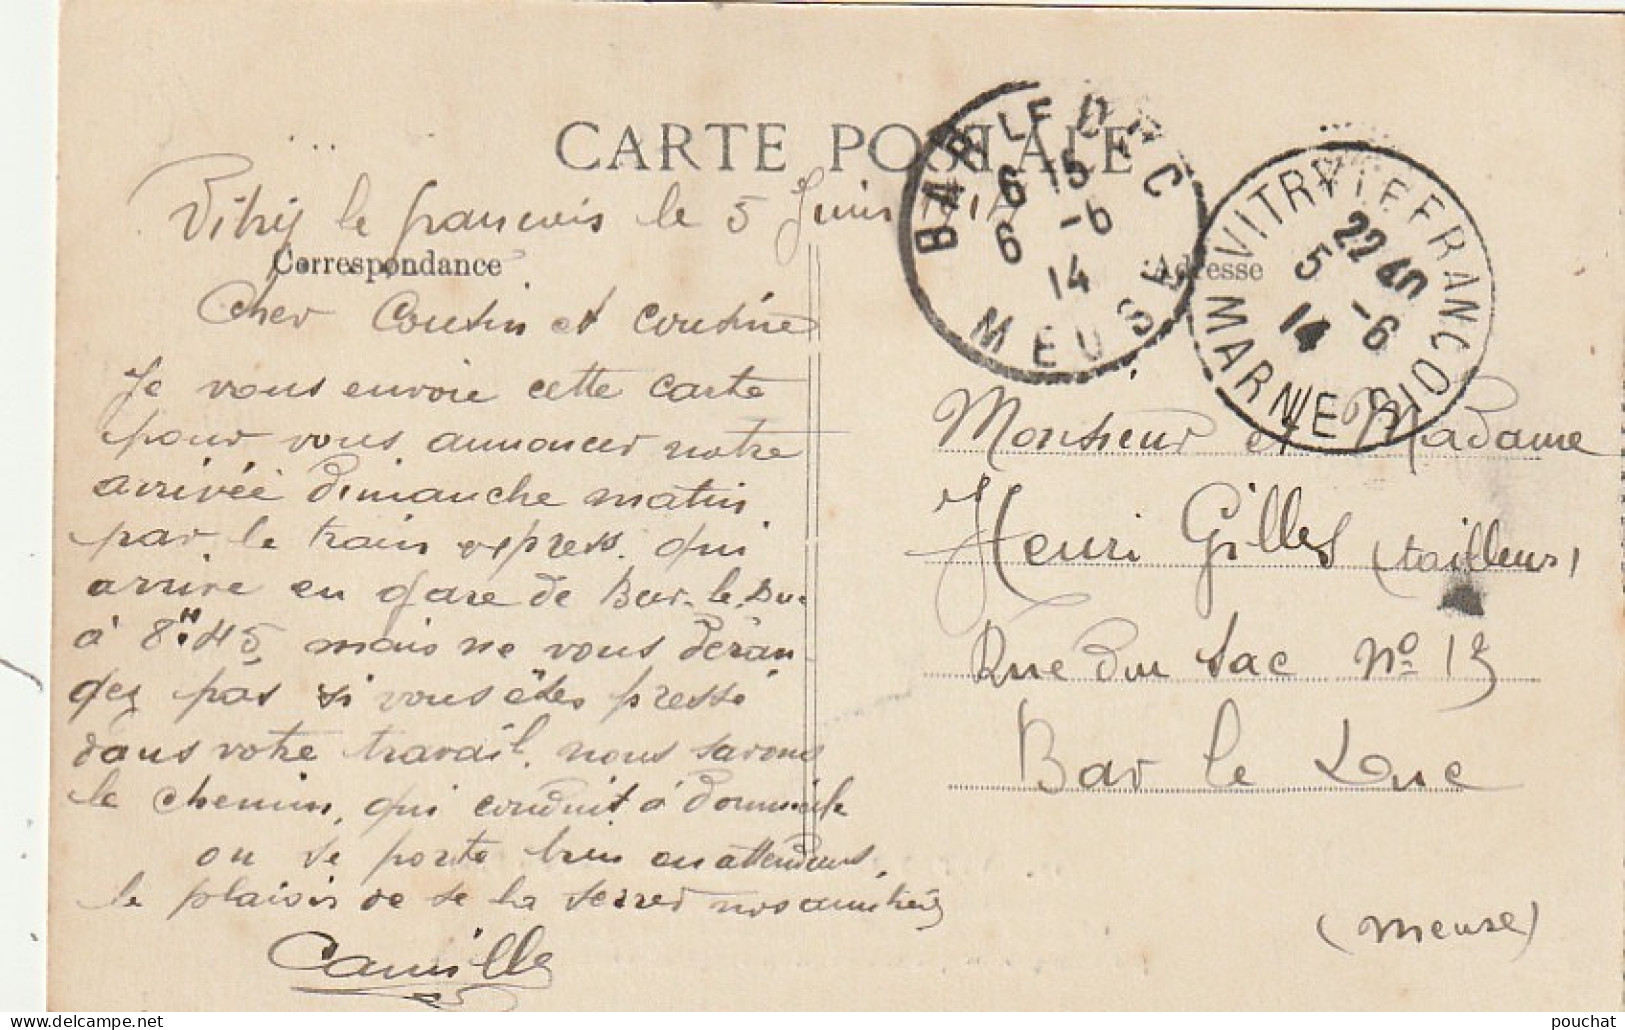 CARTE POSTALE
Vitry le francois le 5 Juin 1914
Correspondance
Cher Cousin et Cousine
Je vous envoie cette carte
pour vous annoncer notre
arrivée Dimanche matin
par le train express. qui
arrive en gare de Bar-le-Duc
à 8H.45, mais ne vous déran-
gez pas si vous êtes pressé
dans votre travail. nous savons
le chemin, qui conduit à domicile
on se porte bien en attendant,
le plaisir de se la serrer nos amitiés
Camille
BAR LE DUC
6 15
6 -6
14
MEUSE
VITRY LE FRANCOIS
22 40
5 -6
14
MARNE
Adresse
Monsieur et Madame
Henri Gilles (tailleur)
Rue du Sac No 13
Bar le Duc
(Meuse)
pouchat